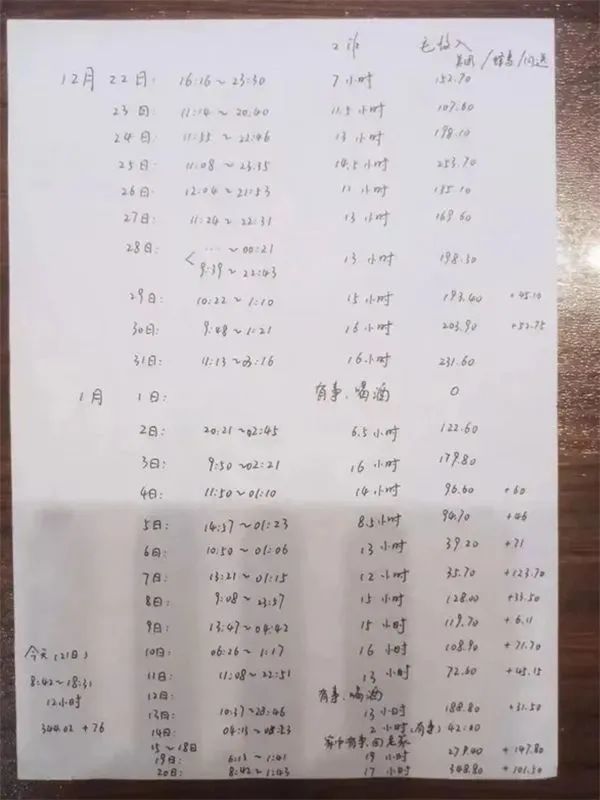 工作 毛收入
美团 /蜂鸟/闪送
12月 22日: 16:16~23:30 7小时 152.70
23日: 11:14~20:40 11.5小时 107.60
24日: 11:55~22:46 13小时 198.10
25日: 11:08~23:35 14.5小时 253.70
26日: 12:04~21:53 11小时 135.10
27日: 11:24~22:31 13小时 169.60
28日: < ...~00:21
9:39~22:43 13小时 198.30
29日: 10:22~1:10 15小时 193.40 +45.10
30日: 9:48~1:21 16小时 203.90 +52.75
31日: 11:13~03:16 16小时 231.60
1月 1日: 有事、喝酒 0
2日: 20:21~02:45 6.5小时 122.60
3日: 9:50~02:21 16小时 179.80
4日: 11:50~01:10 14小时 96.60 +60
5日: 14:37~01:23 8.5小时 94.70 +46
6日: 10:50~01:06 13小时 39.20 +71
7日: 13:21~01:15 12小时 35.70 +123.70
8日: 9:08~23:57 15小时 128.00 +33.50
9日: 13:47~04:42 15小时 119.70 +6.11
10日: 06:26~1:17 16小时 108.90 +71.70
11日: 11:08~22:51 13小时 72.60 +45.15
12日: 有事、喝酒
13日: 10:37~23:46 13小时 188.80 +31.50
14日: 04:13~08:23 2小时(有事) 42.00
15~18日 家中有事,回老家
19日: 6:13~1:41 19小时 279.40 +147.80
20日: 8:42~1:43 17小时 348.80 +101.50
今天(21日)
8:42~18:31
12小时
344.02+76